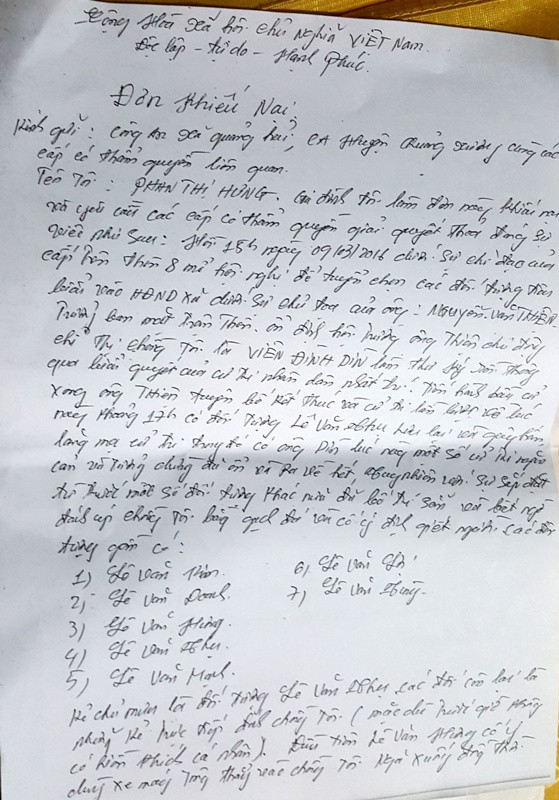 Cộng Hòa Xã hội chủ Nghĩa VIỆT Nam.
Độc lập - tự do - Hạnh phúc.
Đơn Khiếu Nại
Kính gửi: Công An xã quảng hải, CA Huyện Quảng xương cùng các
cấp có thẩm quyền liên quan.
Tên tôi: PHAN THỊ HƯNG. Gia đình tôi làm đơn này khiếu nại
và yêu cầu các cấp có thẩm quyền giải quyết thỏa đáng sự
việc như sau: Hồi 15h ngày 09/03/2016 dưới sự chỉ đạo của
cấp trên thôn 8 mở hội nghị để tuyển chọn các đối tượng tham
bầu vào HĐND xã dưới sự chủ tọa của ông: NGUYỄN VĂN THIỆN
Trưởng ban mặt trận thôn. ổn định hội trường ông Thiện chủ
chỉ thị chồng tôi là VIÊN ĐÌNH DIN làm thư ký rồi thông
qua biểu quyết của cử tri nhân dân nhất trí tiến hành bầu cử
xong ông Thiện tuyên bố kết thúc và cử tri lần lượt về lúc
này khoảng 17h có đối tượng Lê Văn Như lưu lại và
làng mạ cử tri trong đó có ông Din lúc này một số cử tri ngăn
can và tưởng chừng đã ổn và ra về hết, nhiên với sự sắp đặt
từ trước một số đối tượng khác nữa đã bố trí sẵn và bất ngờ
đánh úp chồng tôi bằng gạch đá và có ý định giết người. các đối
tượng gồm có:
1) Lê Văn
2) Lê Văn Doanh.
3) Lê Văn Hùng.
4) Lê Văn Như.
5) Lê Văn Mạnh.
6) Lê Văn
7) Lê Văn
Kẻ chủ mưu là đối tượng Lê Văn Như các đối còn lại là
những kẻ trực tiếp đánh chồng tôi. (mặc dù trước giờ không
có hiềm khích cá nhân). Đầu tiên Lê Văn Hùng cố ý
dùng xe máy tông thẳng vào chồng tôi ngã xuống đồng thời